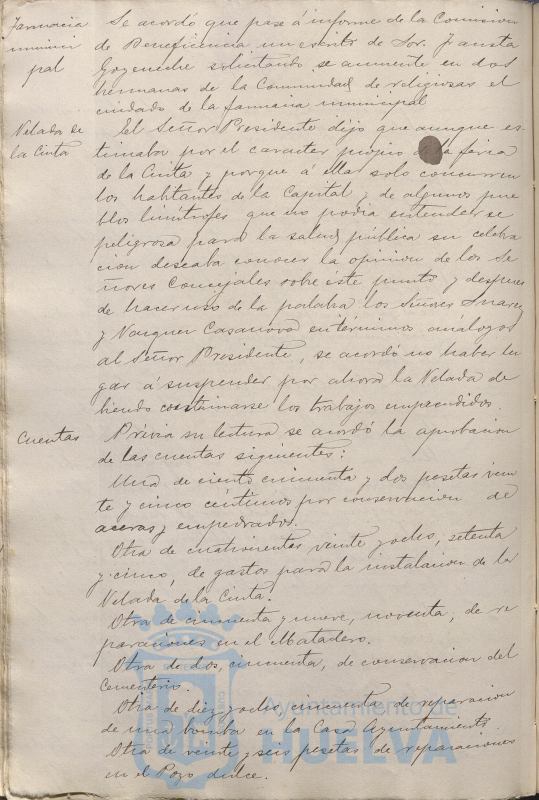 Farmacia
munici
pal
Se acordó que pase á informe de la Comision
de Beneficencia un escrito de Sor. Fausta
Goyeneche solicitando se aumente en dos
hermanas de la Comunidad de religiosas el
cuidado de la farmacia municipal
Velada de
la Cinta
El Señor Presidente dijo que aunque es-
timaba por el caracter propio de la feria
de la Cinta y porque á ella solo concurren
los habitantes de la Capital y de algunos pue
blos limítrofes que no podia entenderse
peligrosa para la salud pública su celebra
cion deseaba conocer la opinion de los Se
ñores Concejales sobre este punto y despues
de hacer uso de la palabra los Señores Suarez
y Vazquez Casanova en términos análogos
al Señor Presidente, se acordó no haber lu
gar á suspender por ahora la Velada de
biendo continuarse los trabajos emprendidos
Cuentas
Prévia su lectura se acordó la aprobacion
de las cuentas siguientes:
Una de ciento cincuenta y dos pesetas vein
te y cinco céntimos por conservacion de
aceras y empedrados.
Otra de cuatrocientas veinte y ocho, setenta
y cinco, de gastos para la instalacion de la
Velada de la Cinta.
Otra de cincuenta y nueve, noventa, de re
paraciones en el Matadero.
Otra de dos, cincuenta, de conservacion del
Cementerio.
Otra de diez y ocho cincuenta de reparacion
de una bomba en la Casa Ayuntamiento.
Otra de veinte y seis pesetas de reparaciones
en el Pozo dulce.
Ayuntamiento de
HUELVA